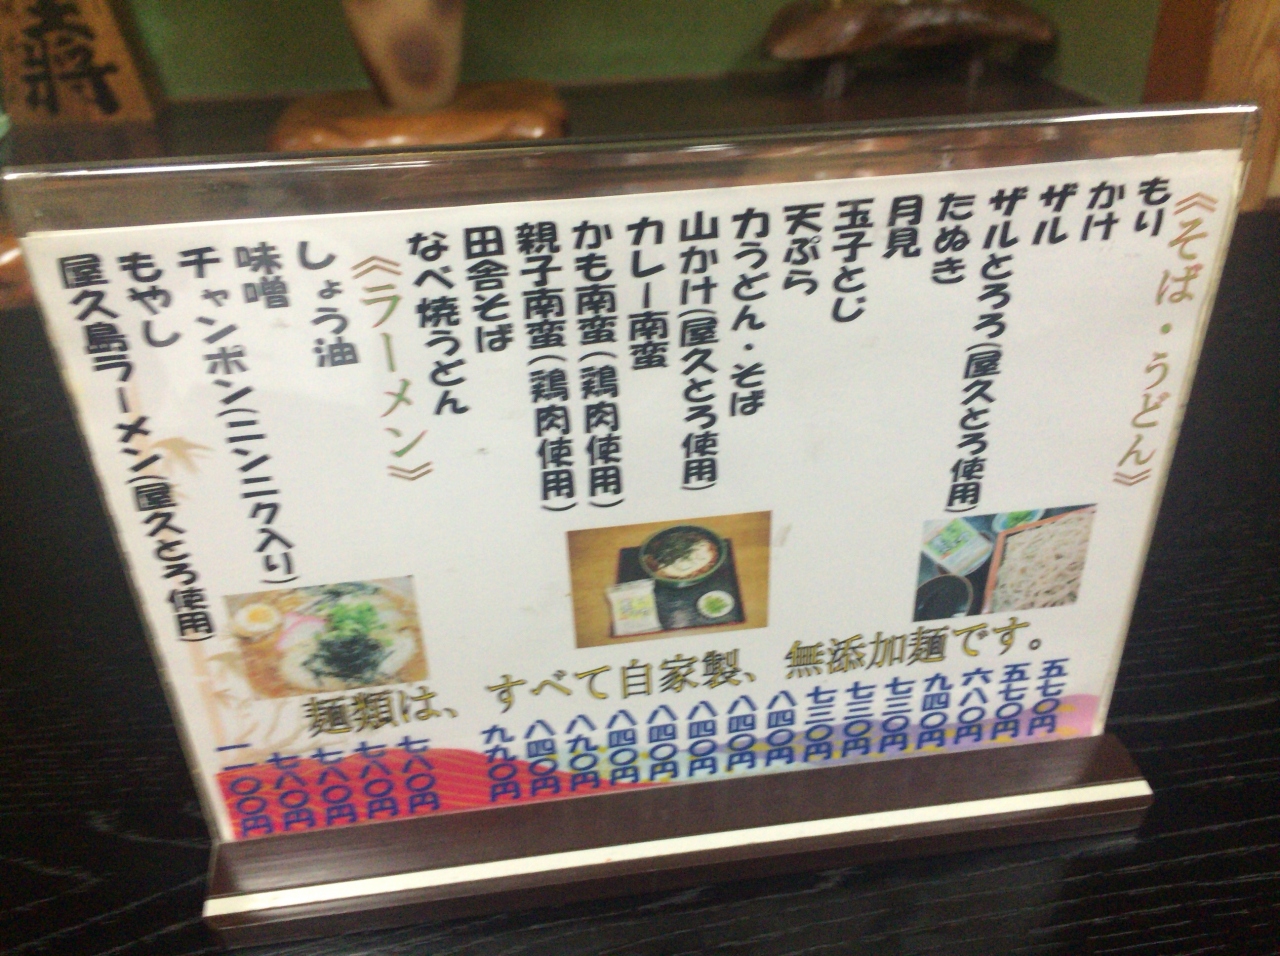 王将
《そば・うどん》
もり
かけ
ザル
ザルとろろ(屋久とろ使用)
たぬき
月見
玉子とじ
天ぷら
力うどん・そば
山かけ(屋久とろ使用)
カレー南蛮
かも南蛮(鶏肉使用)
親子南蛮(鶏肉使用)
田舎そば
なべ焼うどん
《ラーメン》
しょう油
味噌
チャンポン(ニンニク入り)
もやし
屋久島ラーメン(屋久とろ使用)
麺類は、すべて自家製、無添加麺です。
五七〇円
五七〇円
六八〇円
九四〇円
七三〇円
七三〇円
七三〇円
八四〇円
八四〇円
八四〇円
八四〇円
八四〇円
八九〇円
八四〇円
九九〇円
七八〇円
七八〇円
七八〇円
七八〇円
一一〇〇円